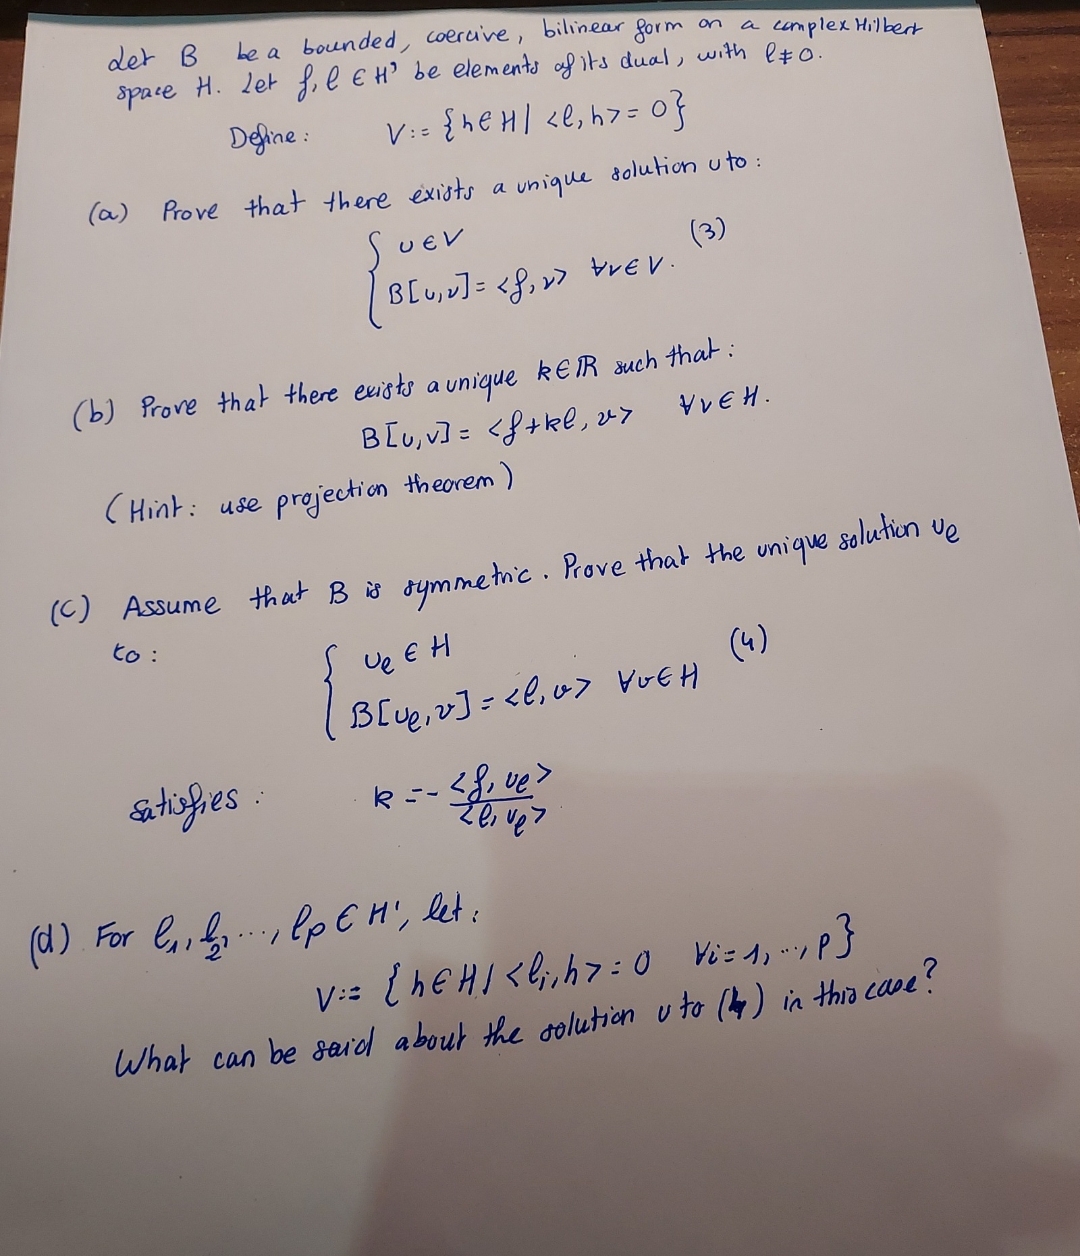 Let B be a bounded, coercive, bilinear form on a complex Hilbert
space H. Let f, l ∈ H' be elements of its dual, with l ≠ 0.
Define: V := {h ∈ H | <l, h> = 0}
(a) Prove that there exists a unique solution u to:
{ u ∈ V
B[u,v] = <f, v> ∀v ∈ V. (3)
(b) Prove that there exists a unique k ∈ ℝ such that:
B[u,v] = <f + kl, v> ∀v ∈ H.
(Hint: use projection theorem)
(c) Assume that B is symmetric. Prove that the unique solution u_l
to:
{ u_l ∈ H
B[u_l, v] = <l, v> ∀v ∈ H (4)
satisfies: k = - <f, u_l> / <l, u_l>
(d) For l_1, l_2, ..., l_p ∈ H', let:
V := {h ∈ H | <l_i, h> = 0 ∀i = 1, ..., p}
What can be said about the solution u to (4) in this case?